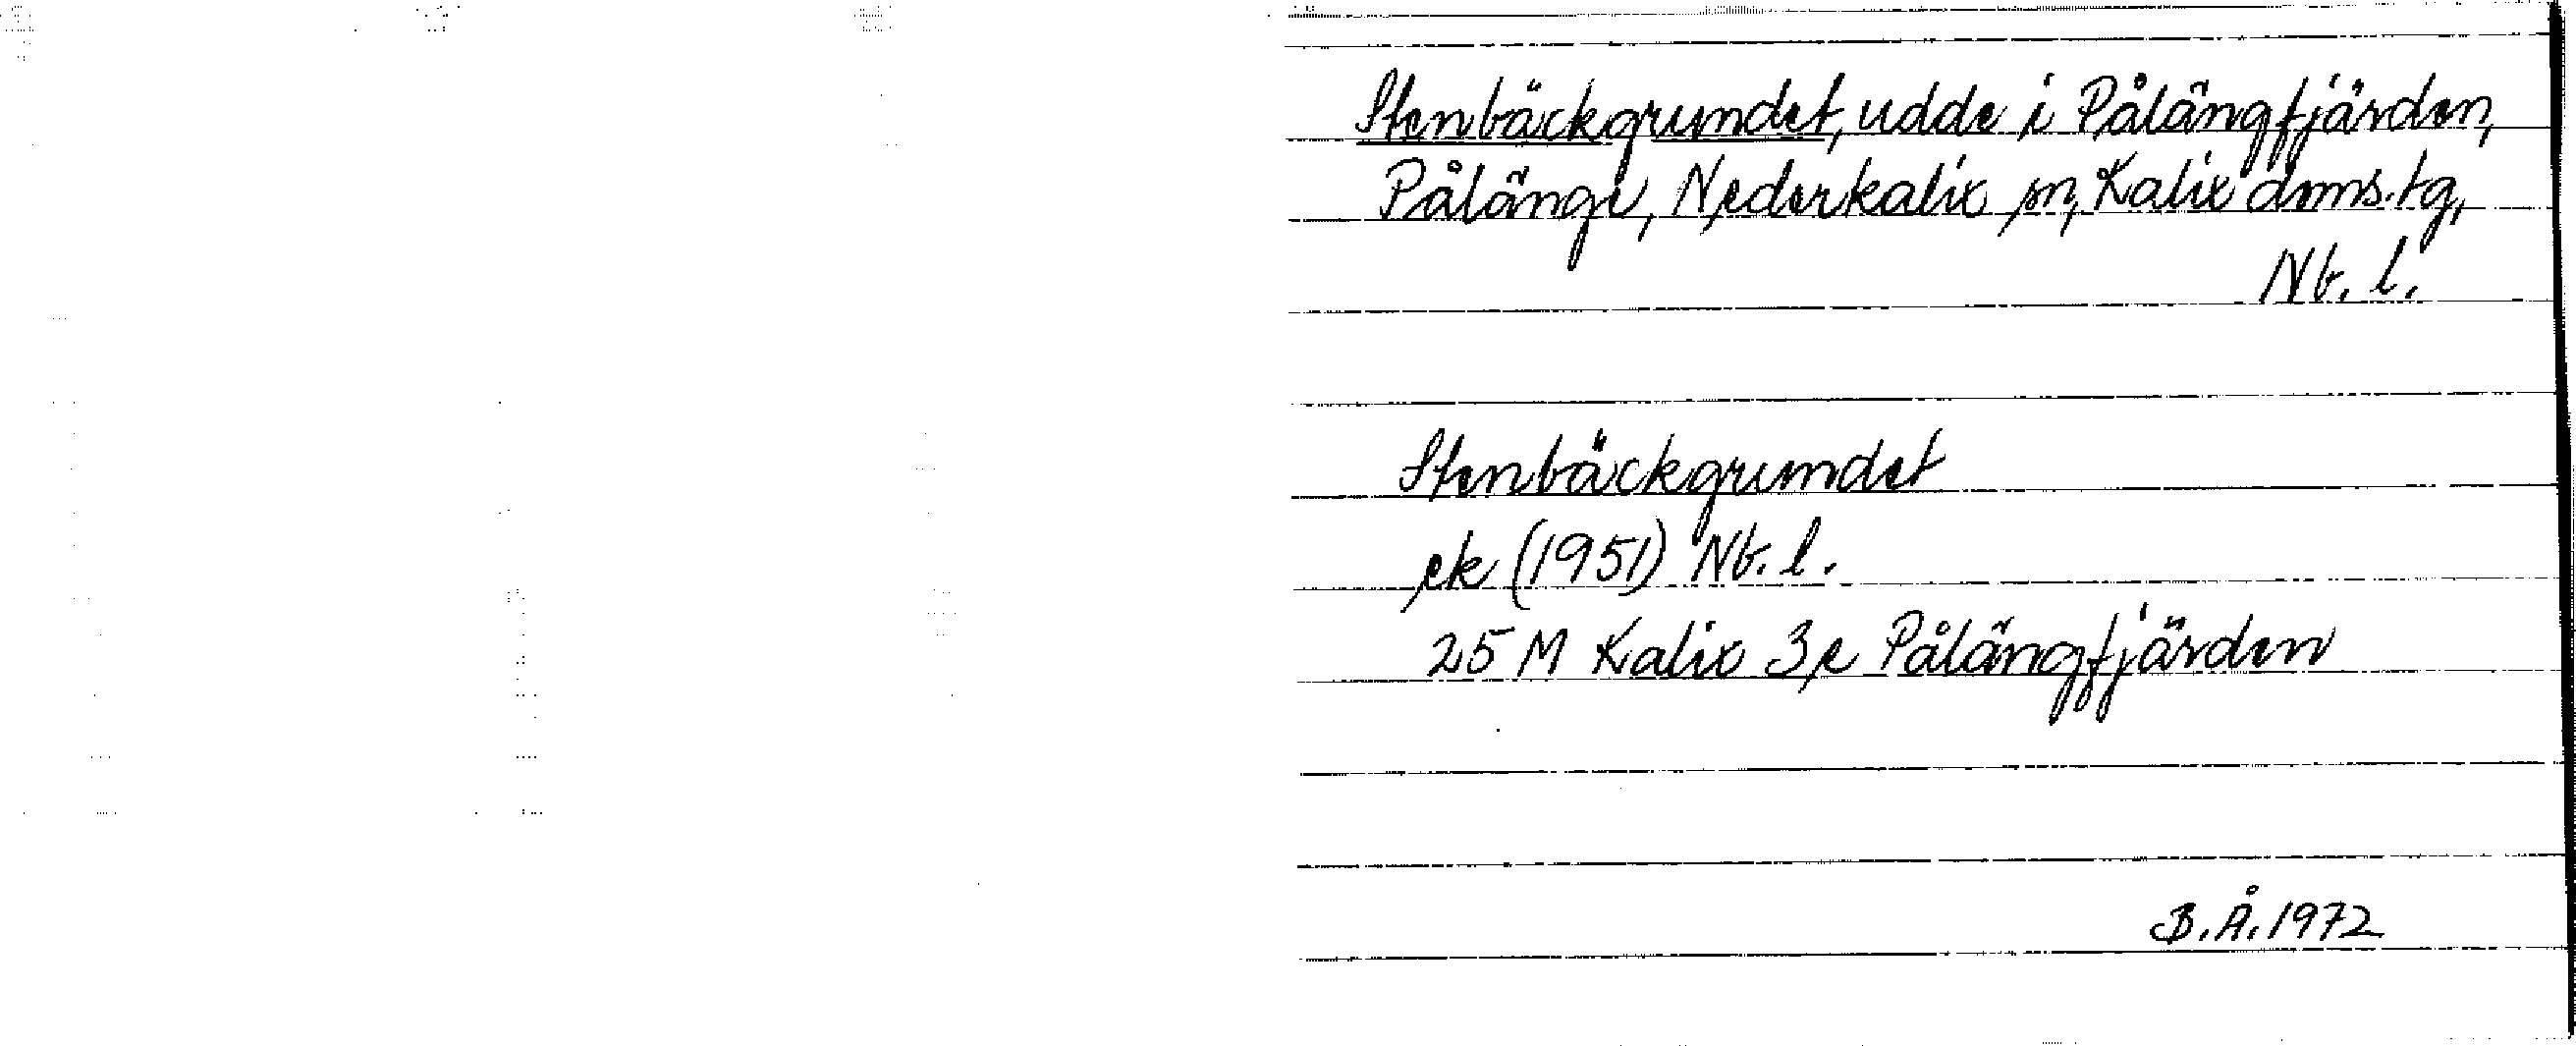 Stenbäckgrundet, udde i Pålängfjärden,
Pålänge, Nederkalix sn, Kalix doms.tg,
Nb. l.
Stenbäckgrundet
ek (1951) Nb. l.
25 M Kalix 3e Pålängfjärden
B.Å. 1972